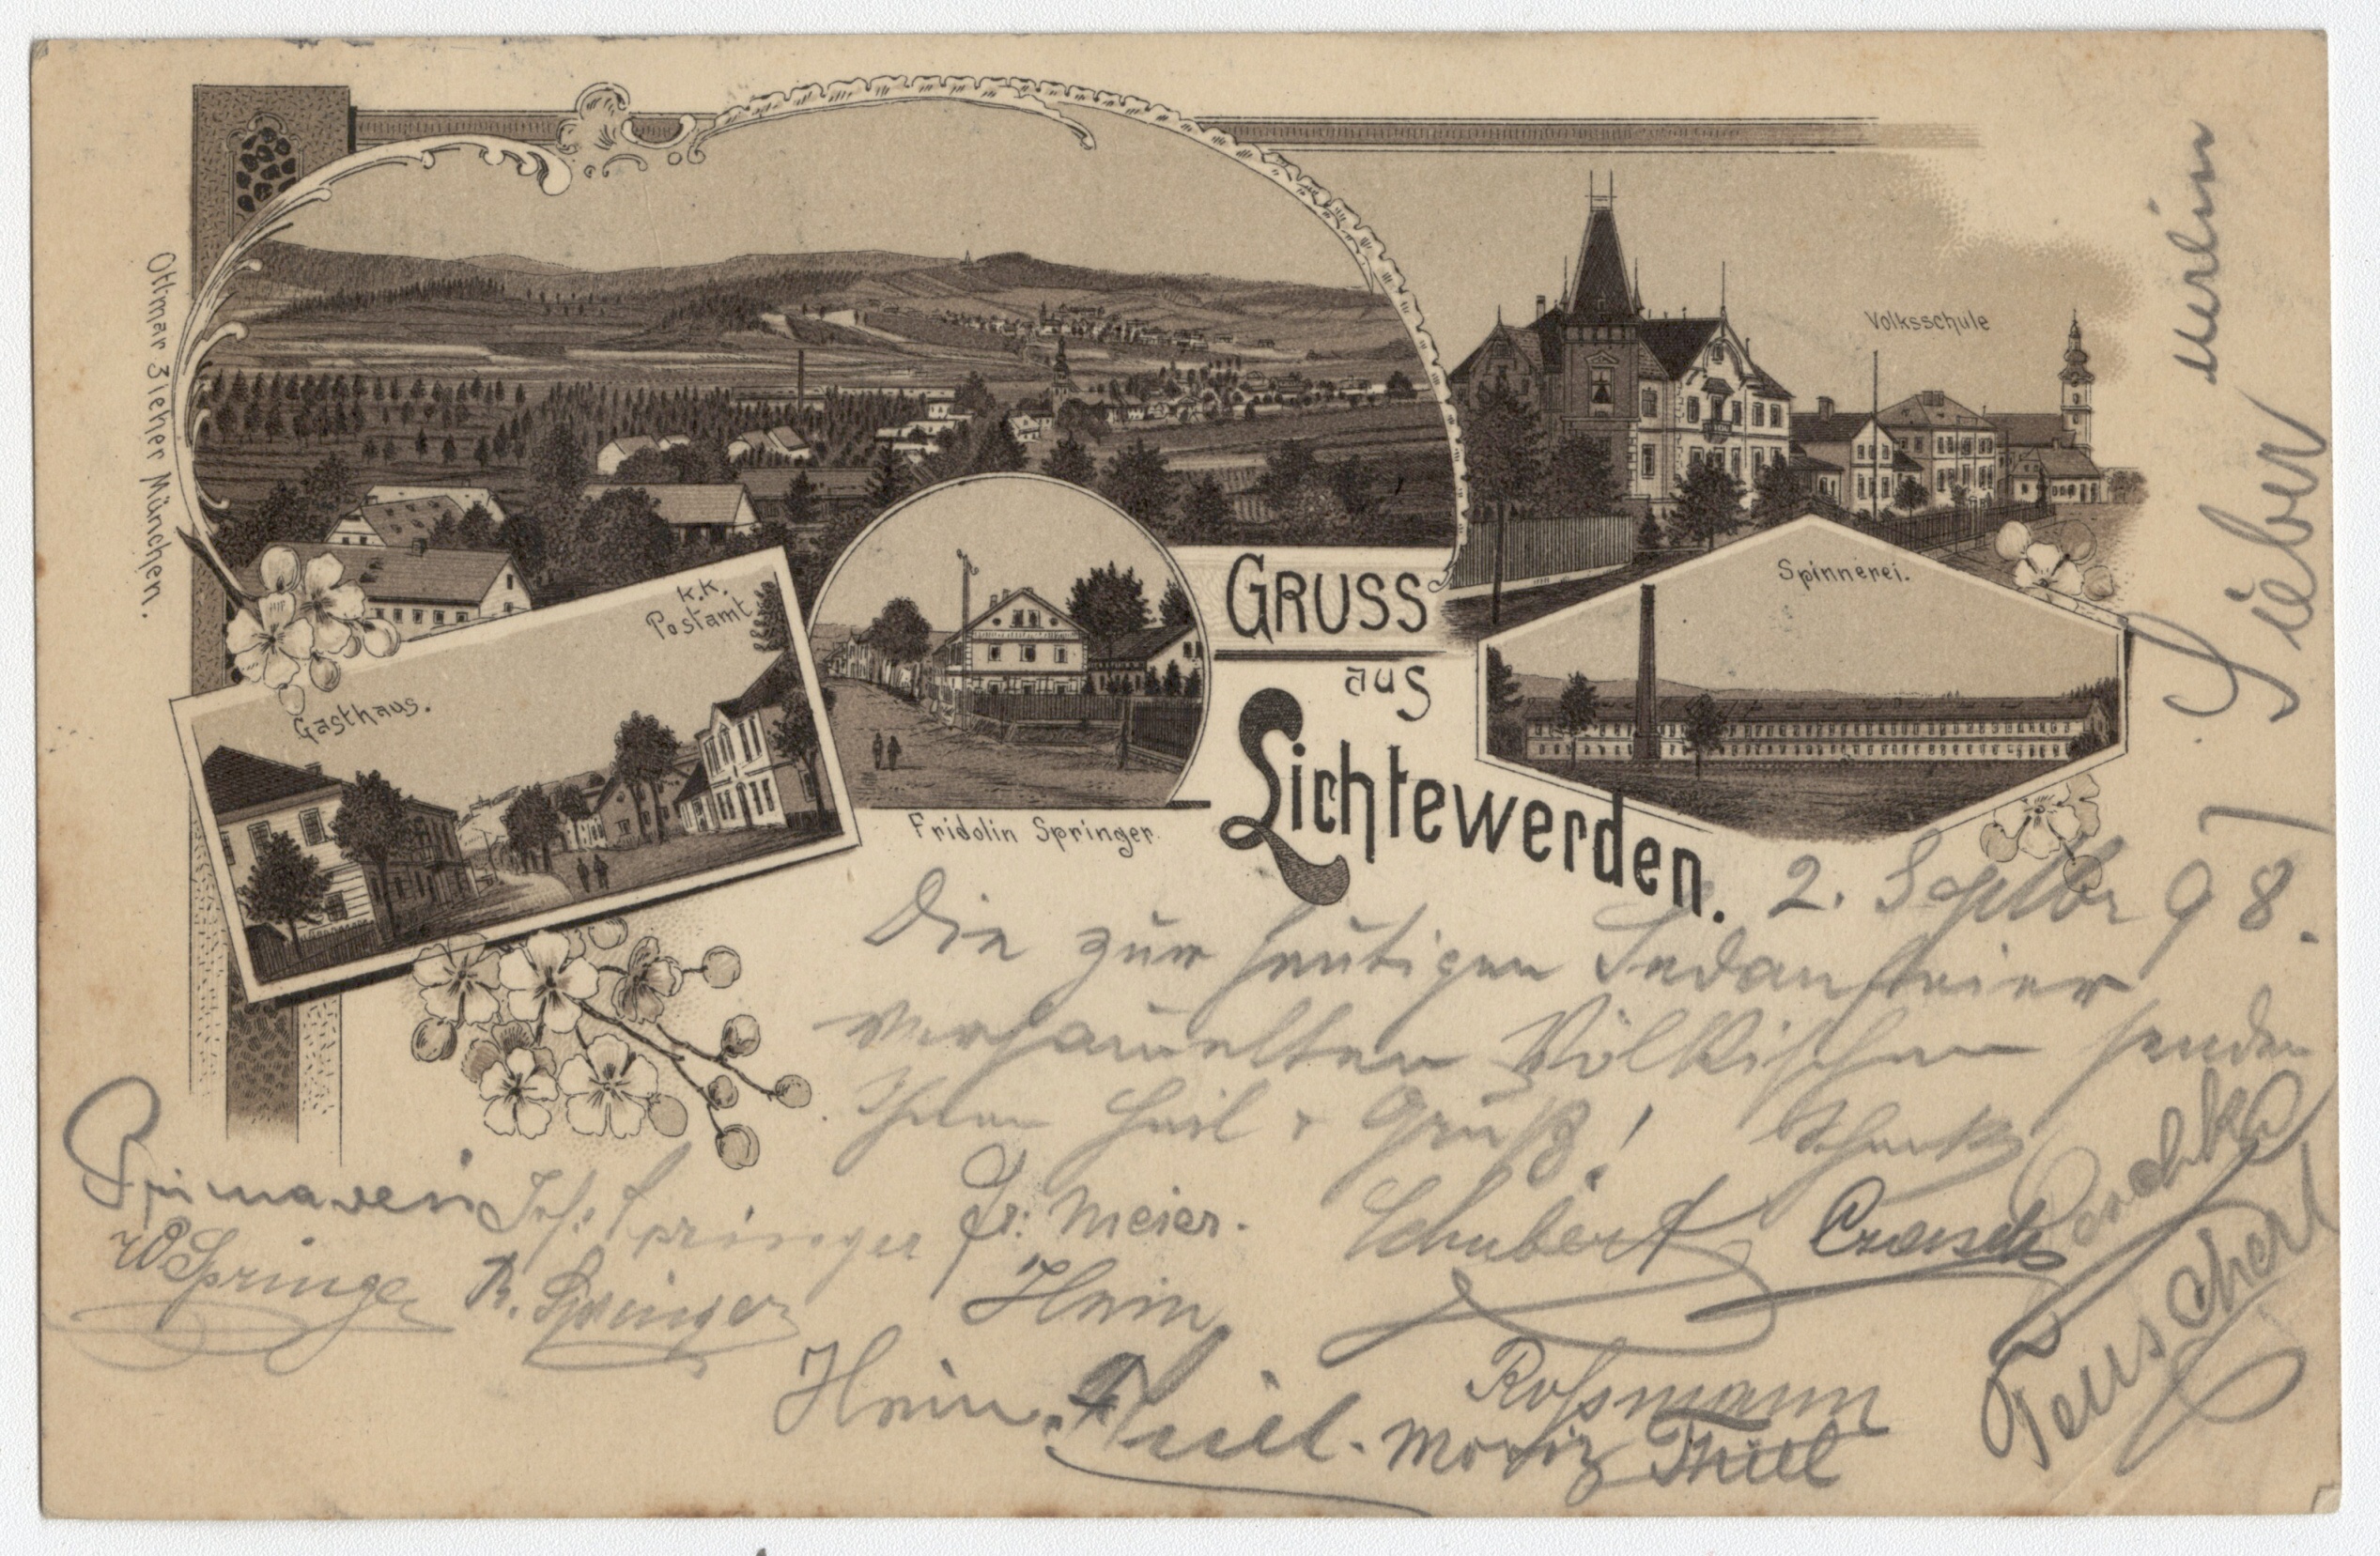 Ottmar Zieher München.
Volksschule
k.k.
Postamt.
Gasthaus.
Fridolin Springer.
GRUSS
aus
Lichtewerden.
Spinnerei.
2. Septbr 98.
Die zur heutigen Sedanfeier
versammelten Völkischen senden
Ihnen Heil + Gruß!
Primavesi Joh. Springer Fr: Meier. Schubert
W Springer R. Springer Hein
Roßmann
Hein. Thiel. Moriz Thiel
Peschke
Teuscherl
Sieber